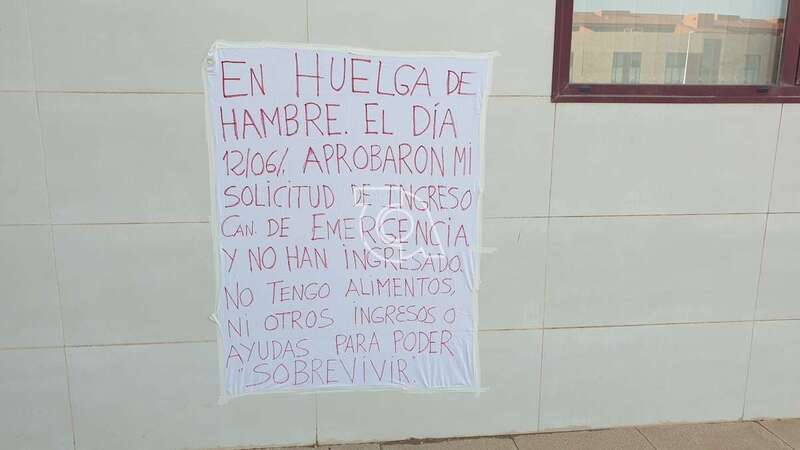 EN HUELGA DE
HAMBRE. EL DÍA
12/06/. APROBARON MI
SOLICITUD DE INGRESO
CAN. DE EMERGENCIA
Y NO HAN INGRESADO.
NO TENGO ALIMENTOS,
NI OTROS INGRESOS O
AYUDAS PARA PODER
"SOBREVIVIR"